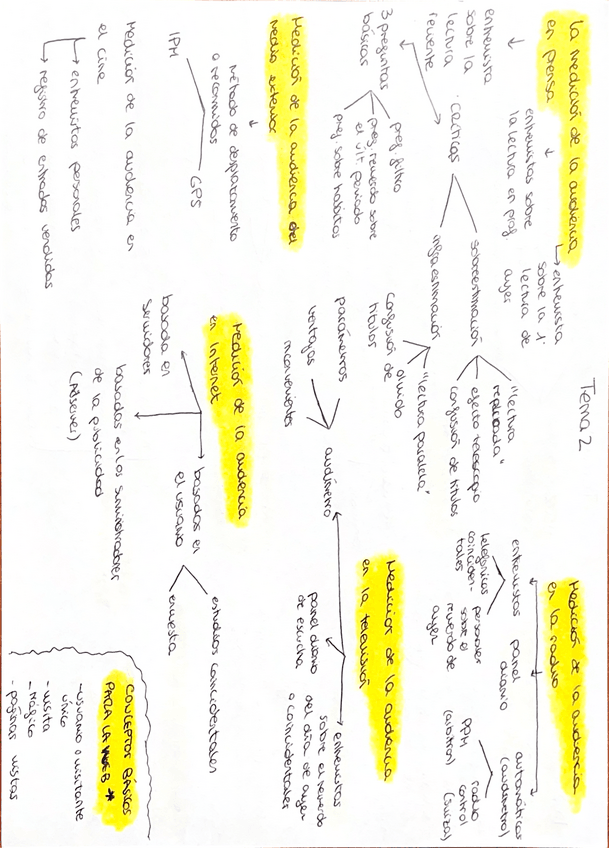 Tema 2
La medición de la audiencia
en prensa
entrevista
sobre la
lectura
reciente
entrevistas sobre
la lectura en prof.
entrevista
sobre la 1ª
lectura de
ayer
3 preguntas
básicas
preg. filtro
preg. recuerdo sobre
el últ. periodo
preg. sobre hábitos
críticas
sobreestimación
"lectura
replicada"
efecto telescopio
confusión de títulos
infraestimación
"lectura paralela"
olvido
confusión de
títulos
Medición de la audiencia
en la radio
entrevistas
telefónicas
coinciden-
tales
personales
sobre el
recuerdo de
ayer
panel
diario
automáticas
(audímetro)
PPM
(Arbitron)
radio
control
(Suiza)
Medición de la audiencia del
medio exterior
método de desplazamiento
o recorridos
IPM
GPS
Medición de la audiencia
en la televisión
audímetro
parámetros
ventajas
inconvenientes
panel diario
de escucha
entrevistas
sobre el recuerdo
del día de ayer
o coincidentales
Medición de la audiencia en
el cine
entrevistas personales
registro de entradas vendidas
Medición de la audiencia
en Internet
basada en
servidores
basados en los suministradores
de la publicidad
(Adserver)
basados en
el usuario
estudios coincidentales
encuesta
CONCEPTOS BÁSICOS
PARA LA WEB *
- usuario o visitante
único
- visita
- tráfico
- páginas vistas